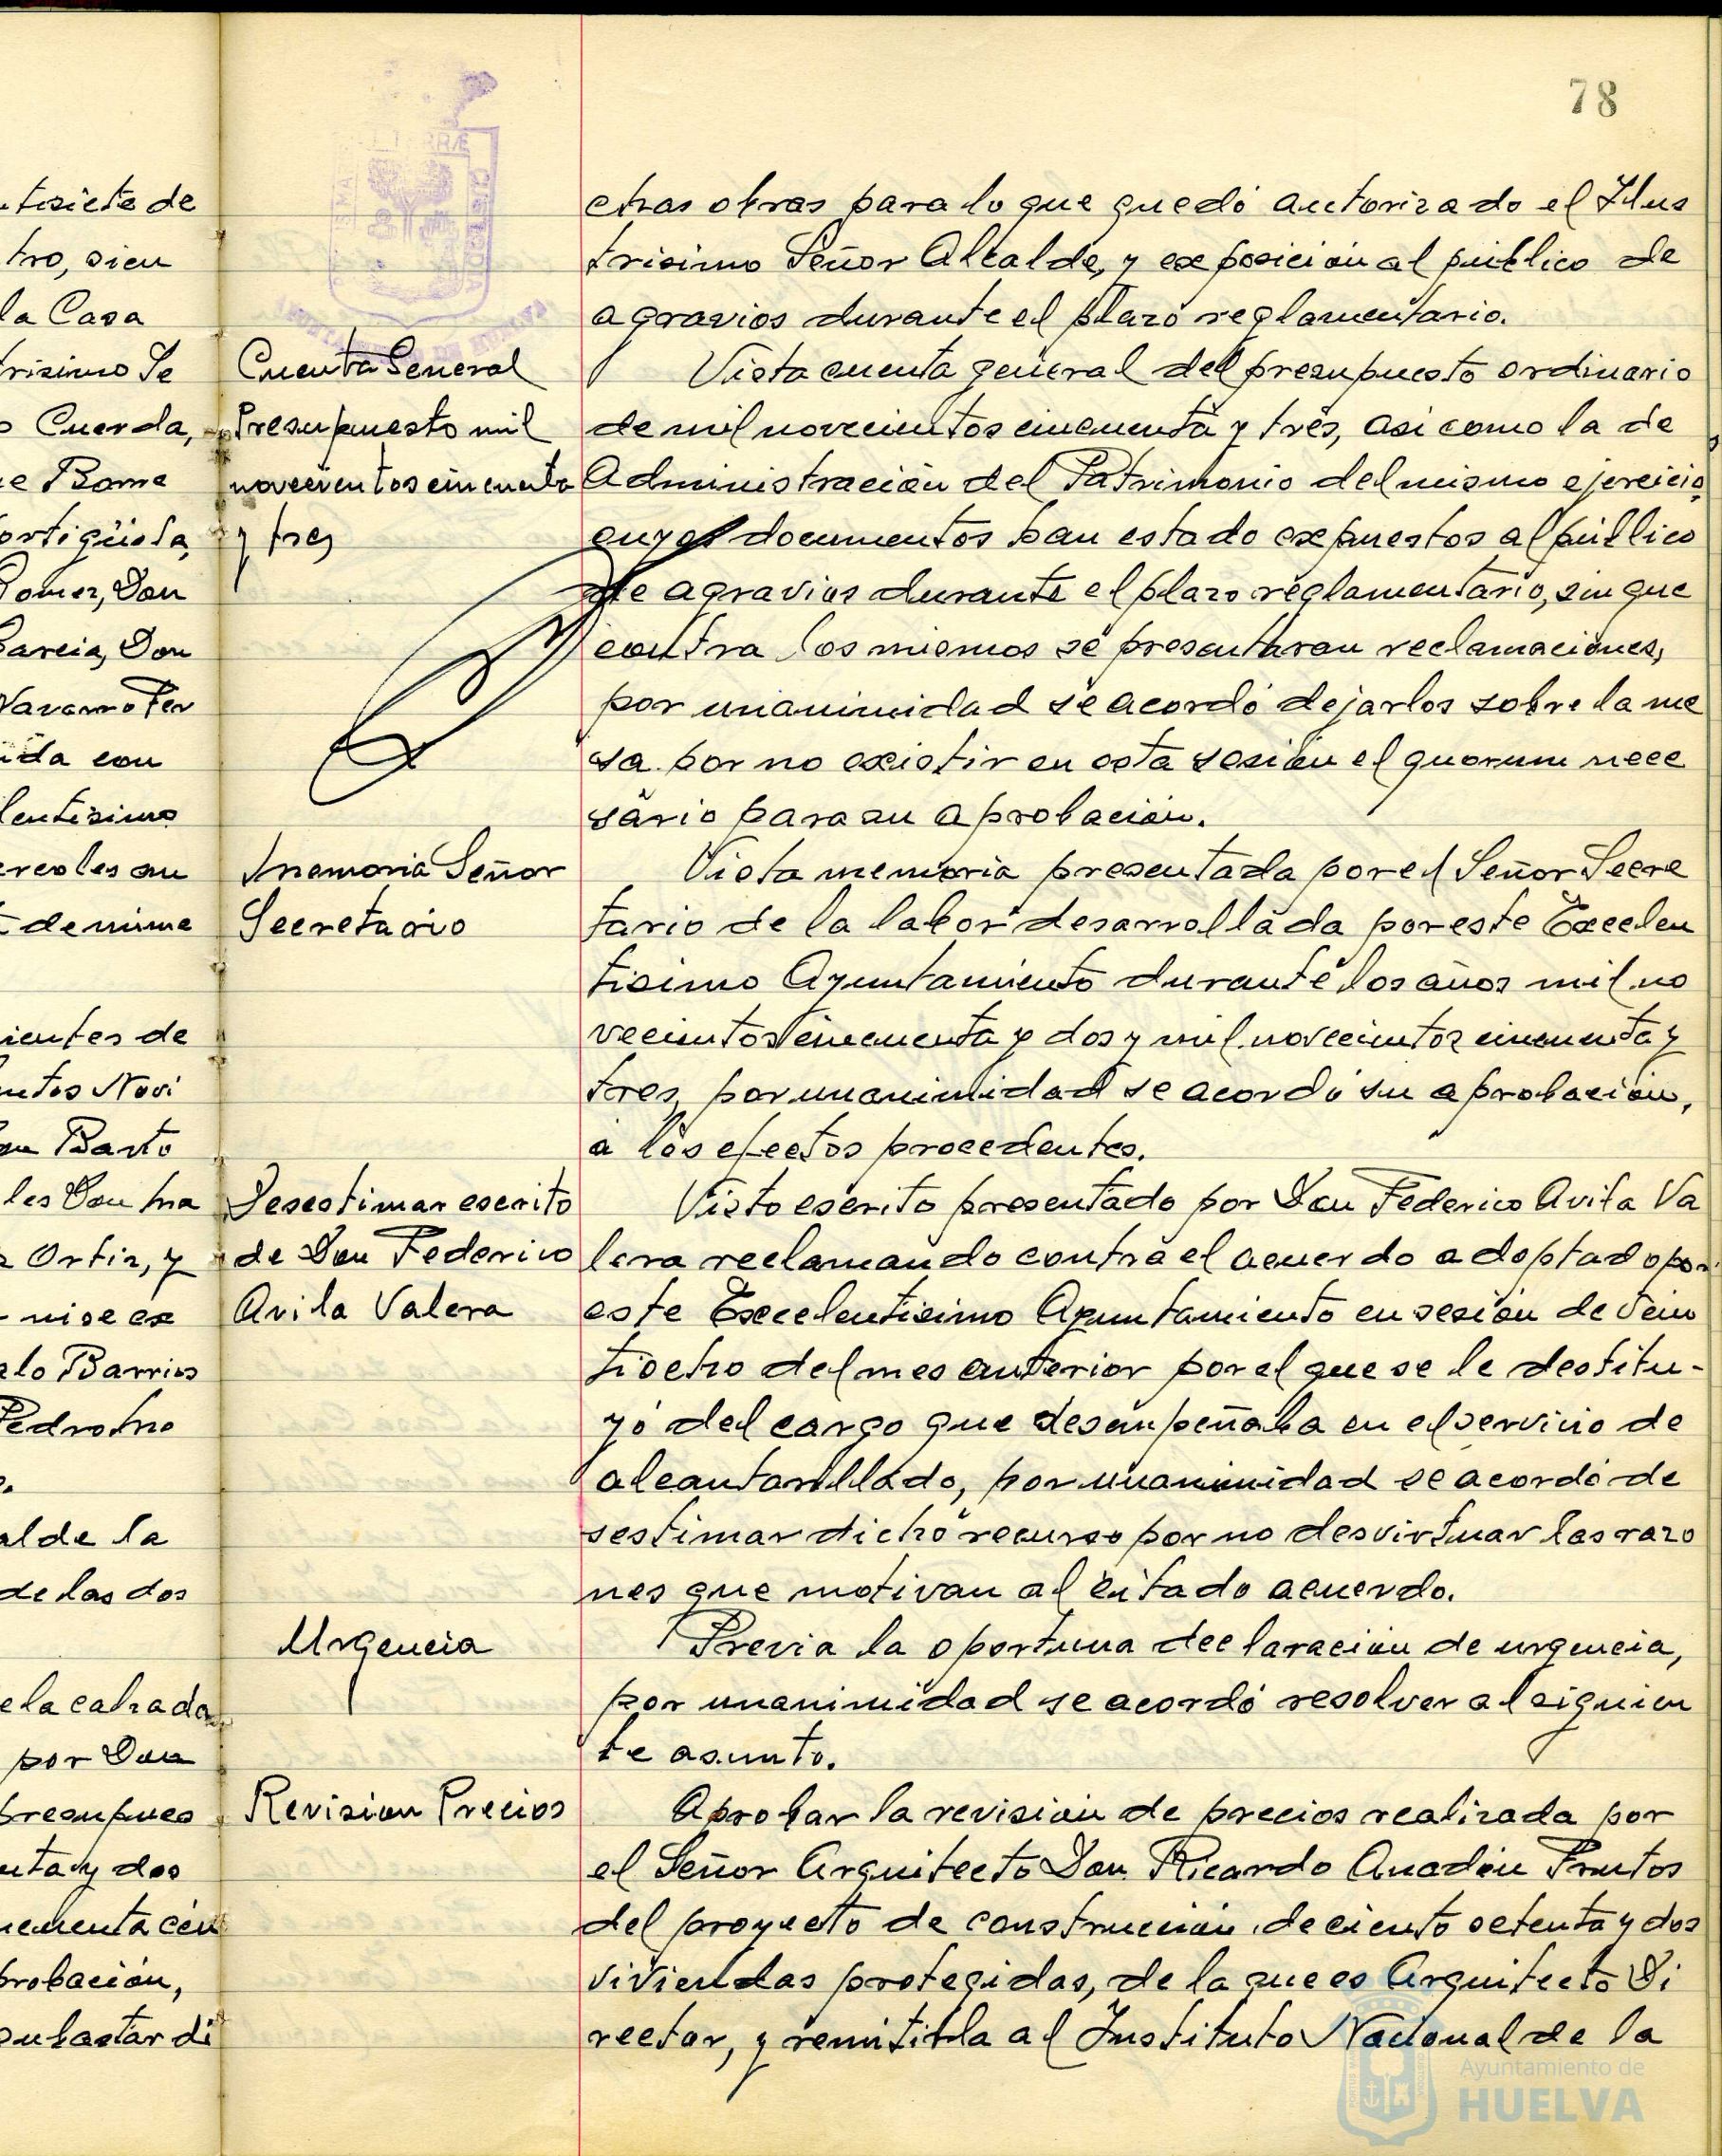 78
chas obras para lo que quedó autorizado el Ilus
trisimo Señor Alcalde, y exposición al público de
agravios durante el plazo reglamentario.
Cuenta General
Presupuesto mil
novecientos cincuenta
y tres
Vista cuenta general del presupuesto ordinario
de mil novecientos cincuenta y tres, asi como la de
Administración del Patrimonio del mismo ejercicio,
cuyos documentos han estado expuestos al público
de agravios durante el plazo reglamentario, sin que
contra los mismos se presentaran reclamaciones,
por unanimidad se acordó dejarlos sobre la me
sa por no existir en esta sesión el quorum nece
sario para su aprobación.
Memoria Señor
Secretario
Vista memoria presentada por el Señor Secre
tario de la labor desarrollada por este Excelen
tisimo Ayuntamiento durante los años mil no
vecientos cincuenta y dos y mil novecientos cincuenta y
tres, por unanimidad se acordó su aprobación,
a los efectos procedentes.
Desestimar escrito
de Don Federico
Avila Valera
Visto escrito presentado por Don Federico Avila Va
lera reclamando contra el acuerdo adoptado por
este Excelentisimo Ayuntamiento en sesión de vein
tiocho del mes anterior por el que se le destitu-
yó del cargo que desempeñaba en el servicio de
alcantarillado, por unanimidad se acordó de
sestimar dicho recurso por no desvirtuar las razo
nes que motivan al citado acuerdo.
Urgencia
Previa la oportuna declaración de urgencia,
por unanimidad se acordó resolver al siguien
te asunto.
Revision Precios
Aprobar la revisión de precios realizada por
el Señor Arquitecto Don Ricardo Anadón Frutos
del proyecto de construcción de ciento setenta y dos
viviendas protegidas, de la que es Arquitecto Di
rector, y remitirla al Instituto Nacional de la
tisiete de
tro, sien
la Casa
trisimo Se
Cuerda,
e Rome
ortigüela,
Gomez, Don
Garcia, Don
Navarro Fer
ida con
lentisimo
ercoles su
de nume
ientes de
ntos Novi
Barto
les Don Ma
Ortiz, y
ni se ex
lo Barrios
Pedro Mo
al de la
de las dos
e la calzada
por Don
presupues
nta y dos
ncuenta cén
probación,
subastar di
Ayuntamiento de
HUELVA